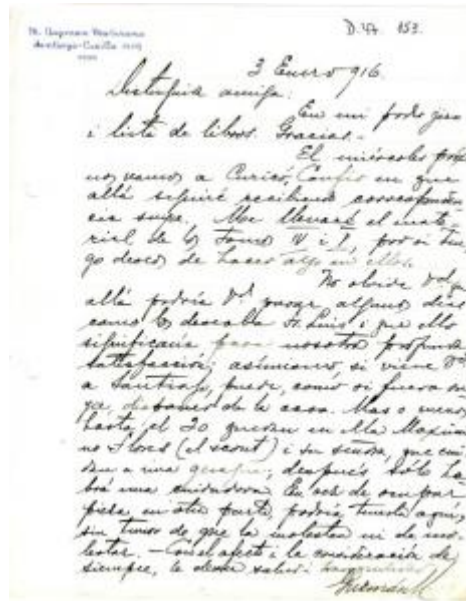 D. 47 153.
M. Guzmán Maturana
Santiago-Casilla
3 Enero 916.
Distinguida amiga:
En mi poder giro
i lista de libros. Gracias.-
El miércoles próxi
nos vamos a Curicó, Confío en que
allá seguiré recibiendo corresponden
cia suya. Me llevaré el mate-
rial de los Tomos IV i V, por si ten
go deseos de hacer algo en ellos.
No olvide Vd. que
allá podría Vd. pasar algunos días
como lo deseaba D. Luis i que ello
significaría para nosotros profunda
satisfacción; asimismo, si viene Vd.
a Santiago, puede, como si fuera su
ya, disponer de la casa. Mas o menos
hasta el 20 quedan en ella Maximia
no Flores (el scout) i su señora, que cui
dan a una; después sólo ha
brá una cuidadora. En vez de ocupar
pieza en otra parte, podría tenerla aquí,
sin temor de que la molesten ni de mo-
lestar. - Con el afecto i la consideración de
siempre, le desea salud i
Guzmán M